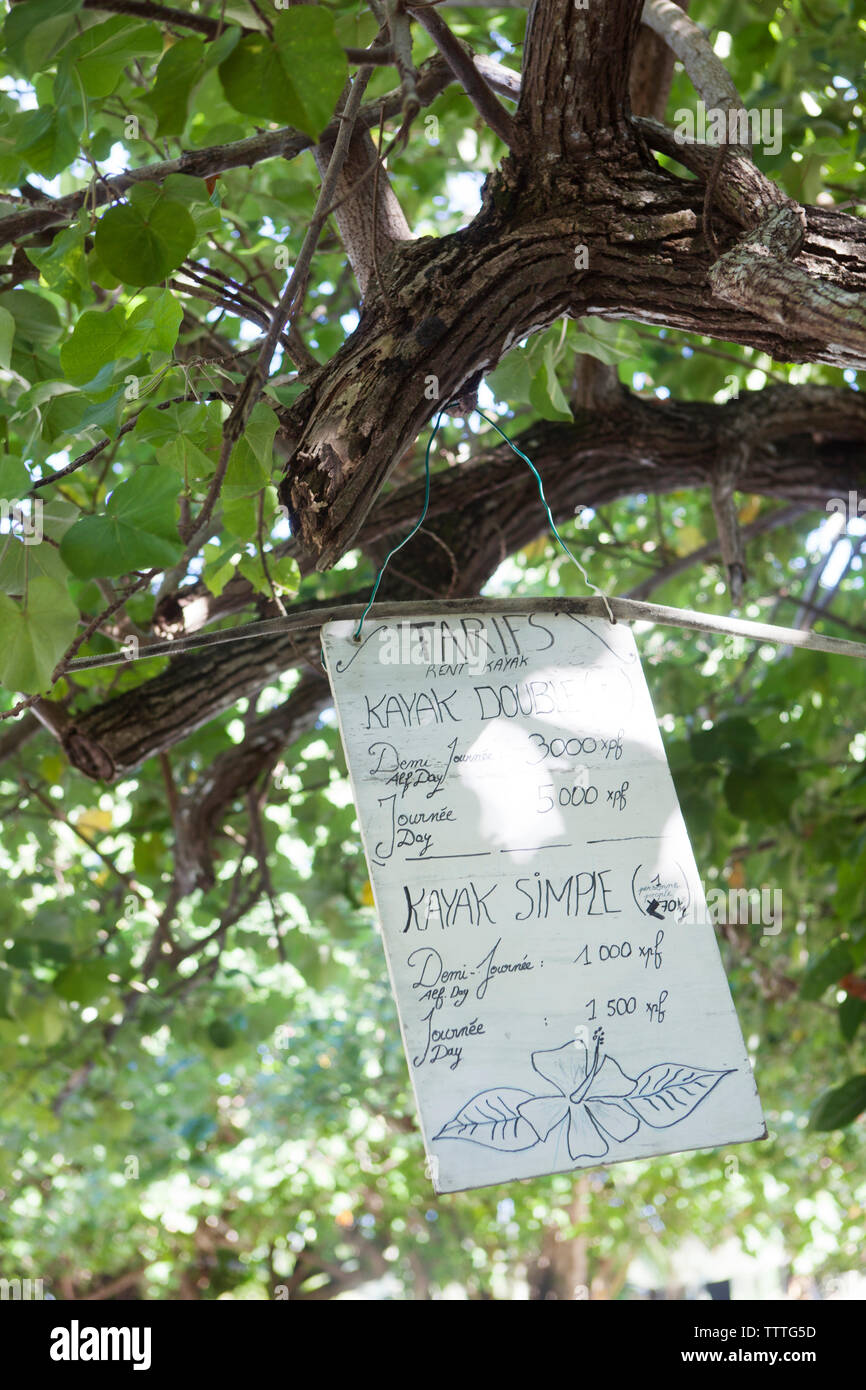 TARIFS
RENT KAYAK
KAYAK DOUBLE
Demi-Journée 3000 xpf
Alf Day
Journée 5000 xpf
Day
KAYAK SIMPLE (1
personne
people
70k
Demi-Journée : 1 000 xpf
Alf. Day
Journée : 1 500 xpf
Day
a
alamy
a
a
a
a
alamy
Image ID: TTTG5D
www.alamy.com